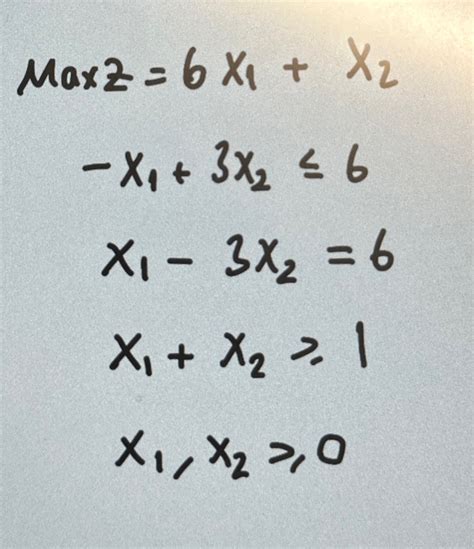 Max Z = 6 X₁ + X₂
-X₁ + 3X₂ ≤ 6
X₁ - 3X₂ = 6
X₁ + X₂ ≥ 1
X₁, X₂ ≥ 0